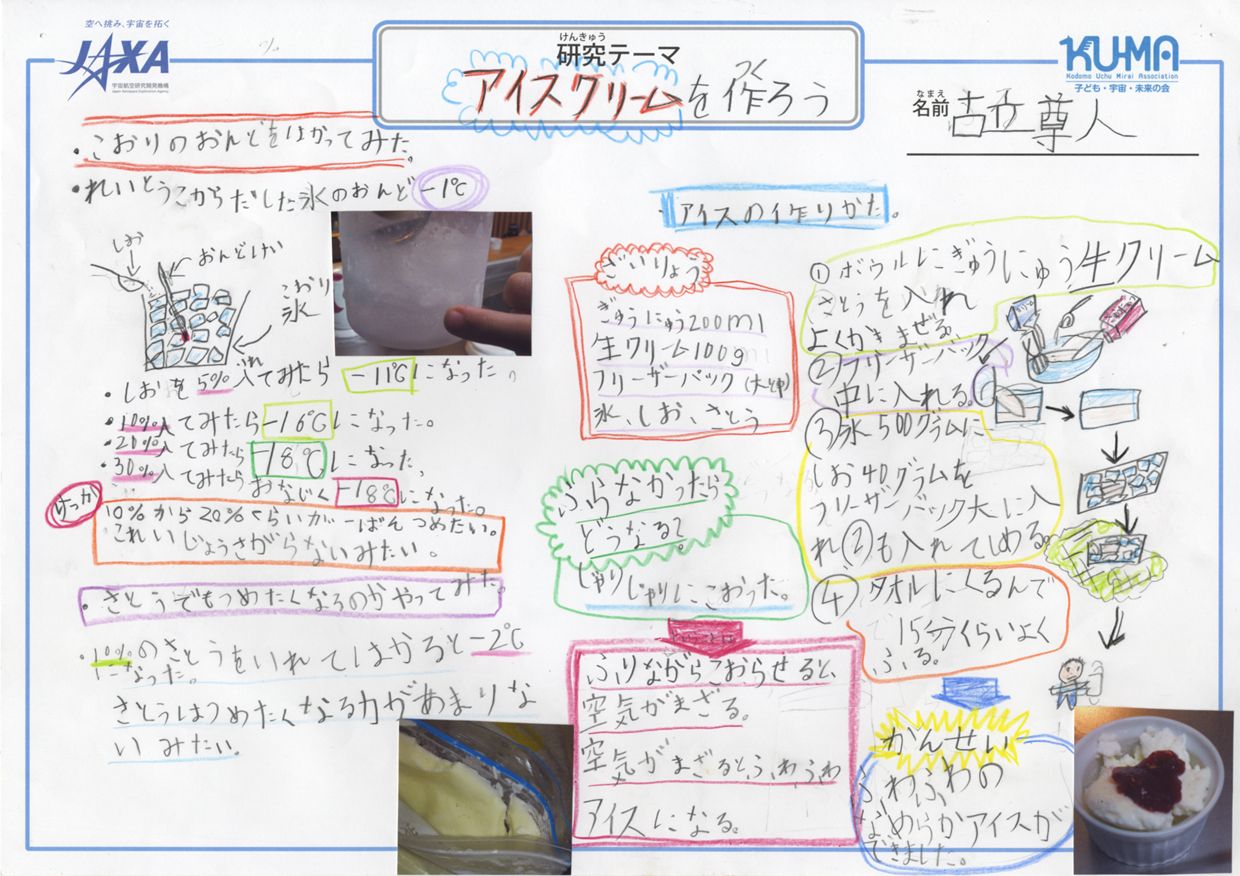 空へ挑み、宇宙を拓く
JAXA
宇宙航空研究開発機構
Japan Aerospace Exploration Agency
けんきゅう
研究テーマ
アイスクリームを作ろう
つく
KU-MA
Kodomo Uchu Mirai Association
子ども・宇宙・未来の会
なまえ
名前
尊人
・こおりのおんどをはかってみた。
・れいとうこからだした氷のおんど -1℃
しお
おんどけい
こおり
氷
・しおを5%入れてみたら -11℃になった。
・10%入てみたら -16℃になった。
・20%入てみたら -18℃
・30%入てみたらおなじく -18℃になった。
けっか
10%から20%くらいが一ばんつめたい。
これいじょうさがらないみたい。
・さとうでもつめたくなるのかやってみた。
・10%のさとうをいれてはかると -2℃
になった。
さとうはつめたくなる力があまりな
いみたい。
・アイスの作りかた。
ざいりょう
ぎゅうにゅう200ml
生クリーム100g
フリーザーパック(大と中)
氷、しお、さとう
ふらなかったら
どうなる?
じゃりじゃりにこおった。
ふりながらこおらせると、
空気がまざる。
空気がまざるとふわふわ
アイスになる。
①ボウルにぎゅうにゅう生クリーム
さとうを入れ
よくかきまぜる。
②フリーザーパック
中に入れる。
③氷500グラムに
しお40グラムを
フリーザーパック大に入
れ②も入れてしめる。
④タオルにくるんで
15分くらいよく
ふる。
かんせい
ふわふわの
なめらかアイスが
できました。